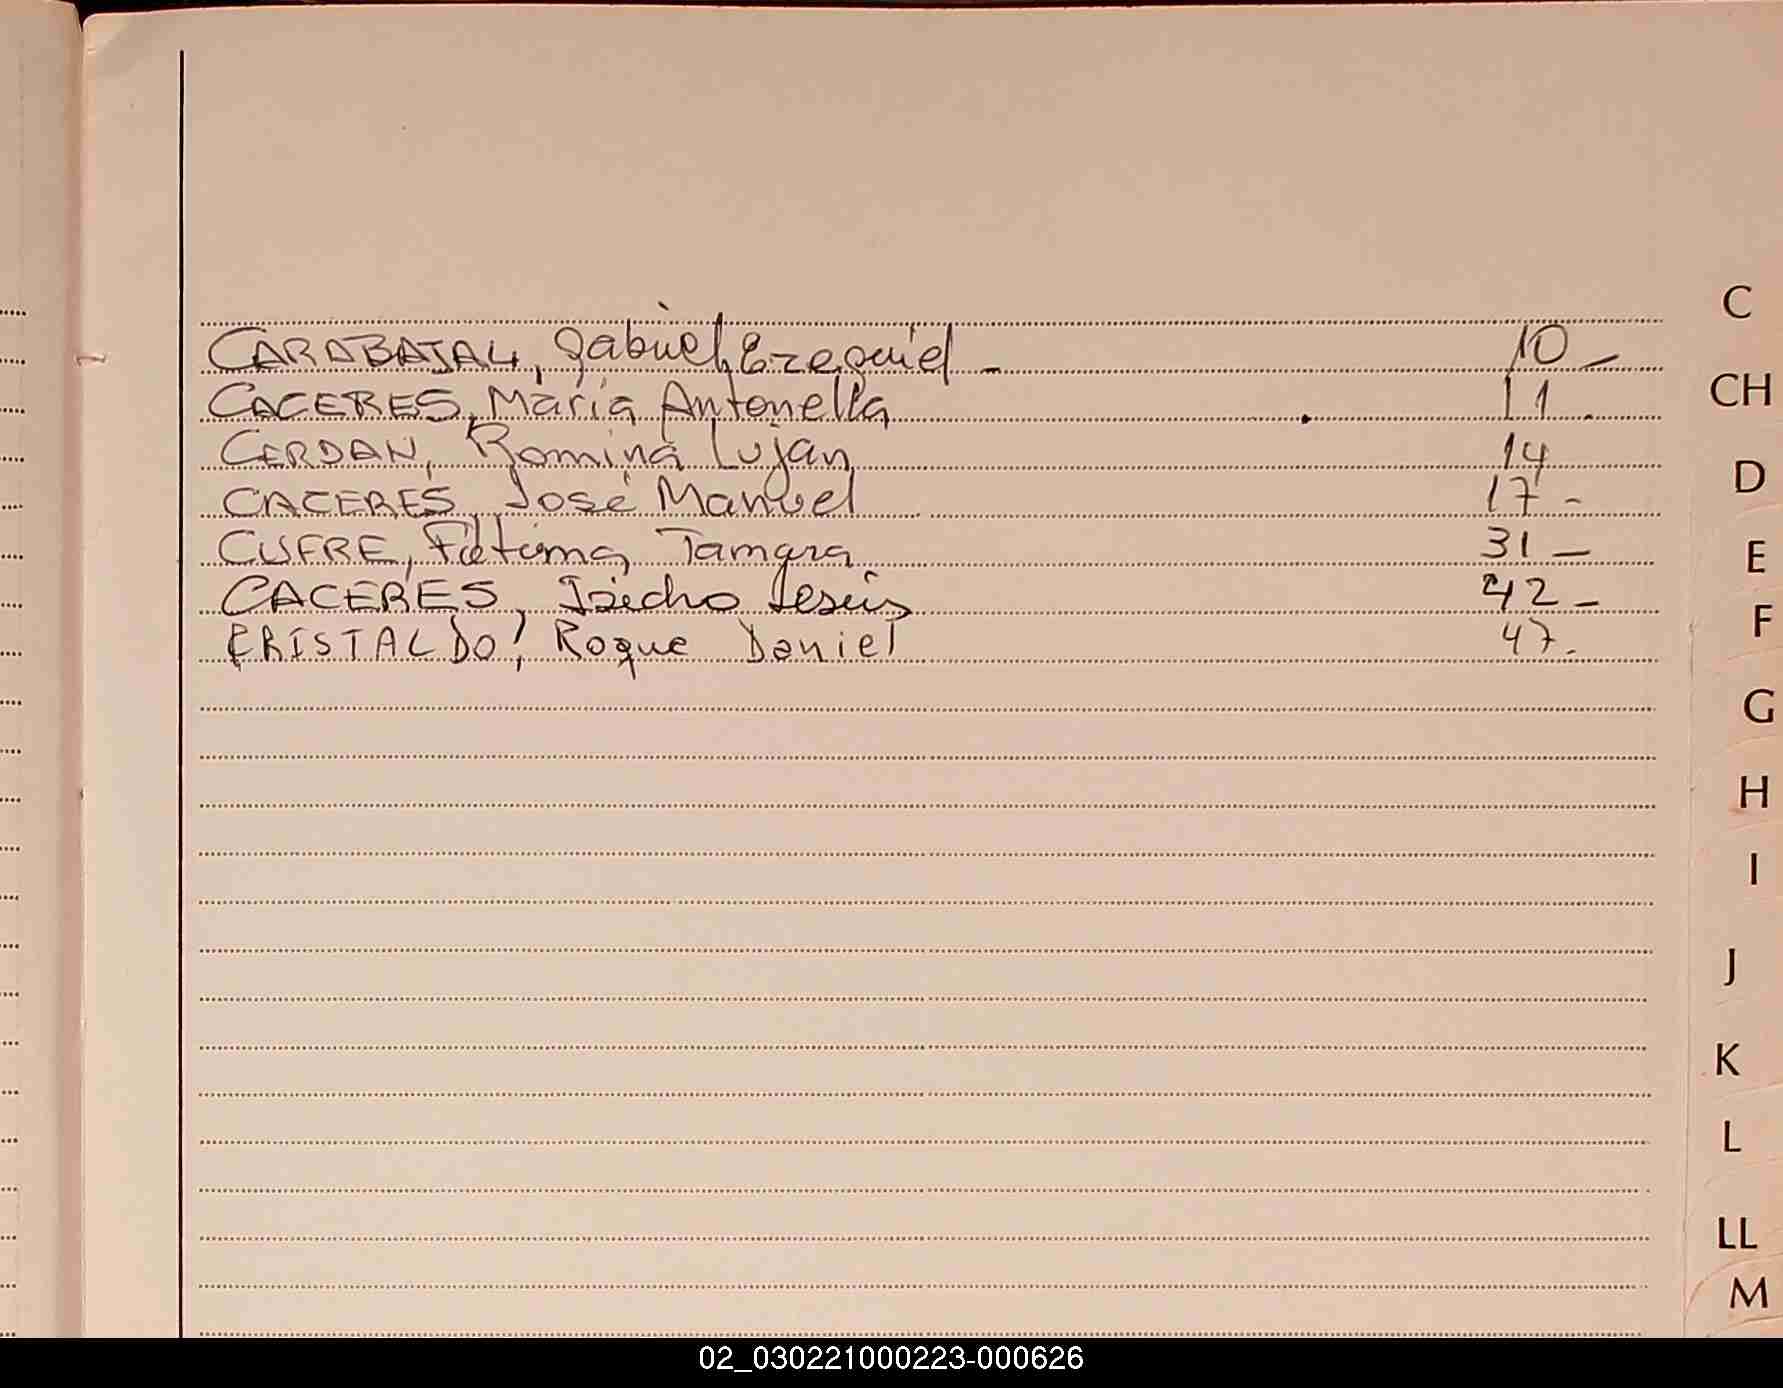 CARABAJAL, Gabriel Ezequiel - 10 -
CACERES, María Antonella 11.
CERDAN, Romina Luján 14
CACERES, José Manuel 17 -
CUFRE, Fátima Tamara 31 -
CACERES, Jesús 42 -
CRISTALDO, Roque Daniel 47.
C
CH
D
E
F
G
H
I
J
K
L
LL
M
02_030221000223-000626